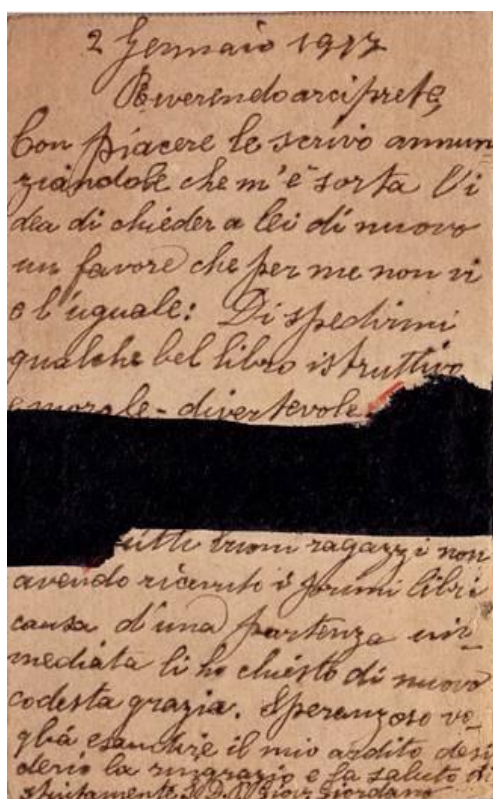 2 Gennaio 1917
Reverendo arciprete,
Con piacere le scrivo annun
ziandole che m'è sorta l'i
dea di chieder a lei di nuovo
un favore che per me non vi
è l'uguale: Di spedirmi
qualche bel libro istruttivo
e morale - divertevole
tutti buoni ragazzi non
avendo ricevuto i primi libri
causa d'una partenza im-
mediata li ho chiesto di nuovo
codesta grazia. Speranzoso vo-
glia esaudire il mio ardito desi
derio la ringrazio e fa saluto di
stintamente Giordano